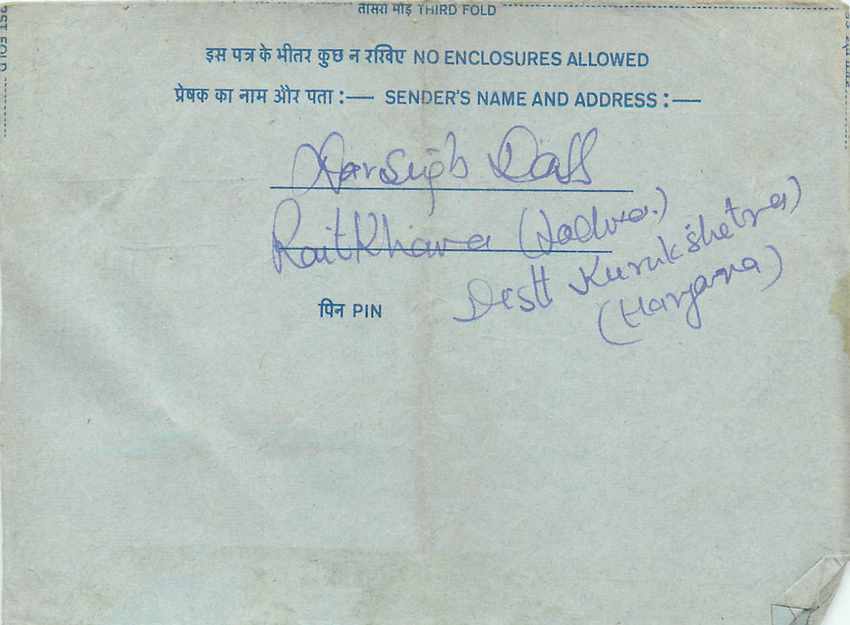 तीसरा मोड़ THIRD FOLD
इस पत्र के भीतर कुछ न रखिए NO ENCLOSURES ALLOWED
प्रेषक का नाम और पता :— SENDER'S NAME AND ADDRESS :—
Narsigh Dass
RaitKhana (Ladwa.)
Distt Kurukshetra)
(Haryana)
पिन PIN